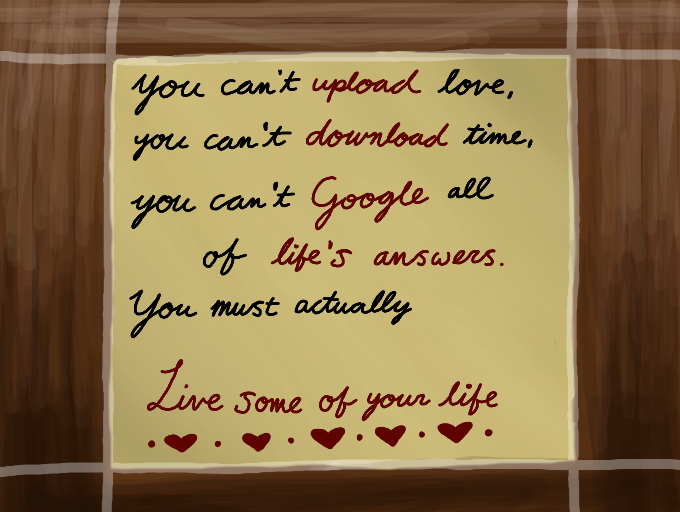 you can't upload love,
you can't download time,
you can't Google all
of life's answers.
You must actually
Live some of your life